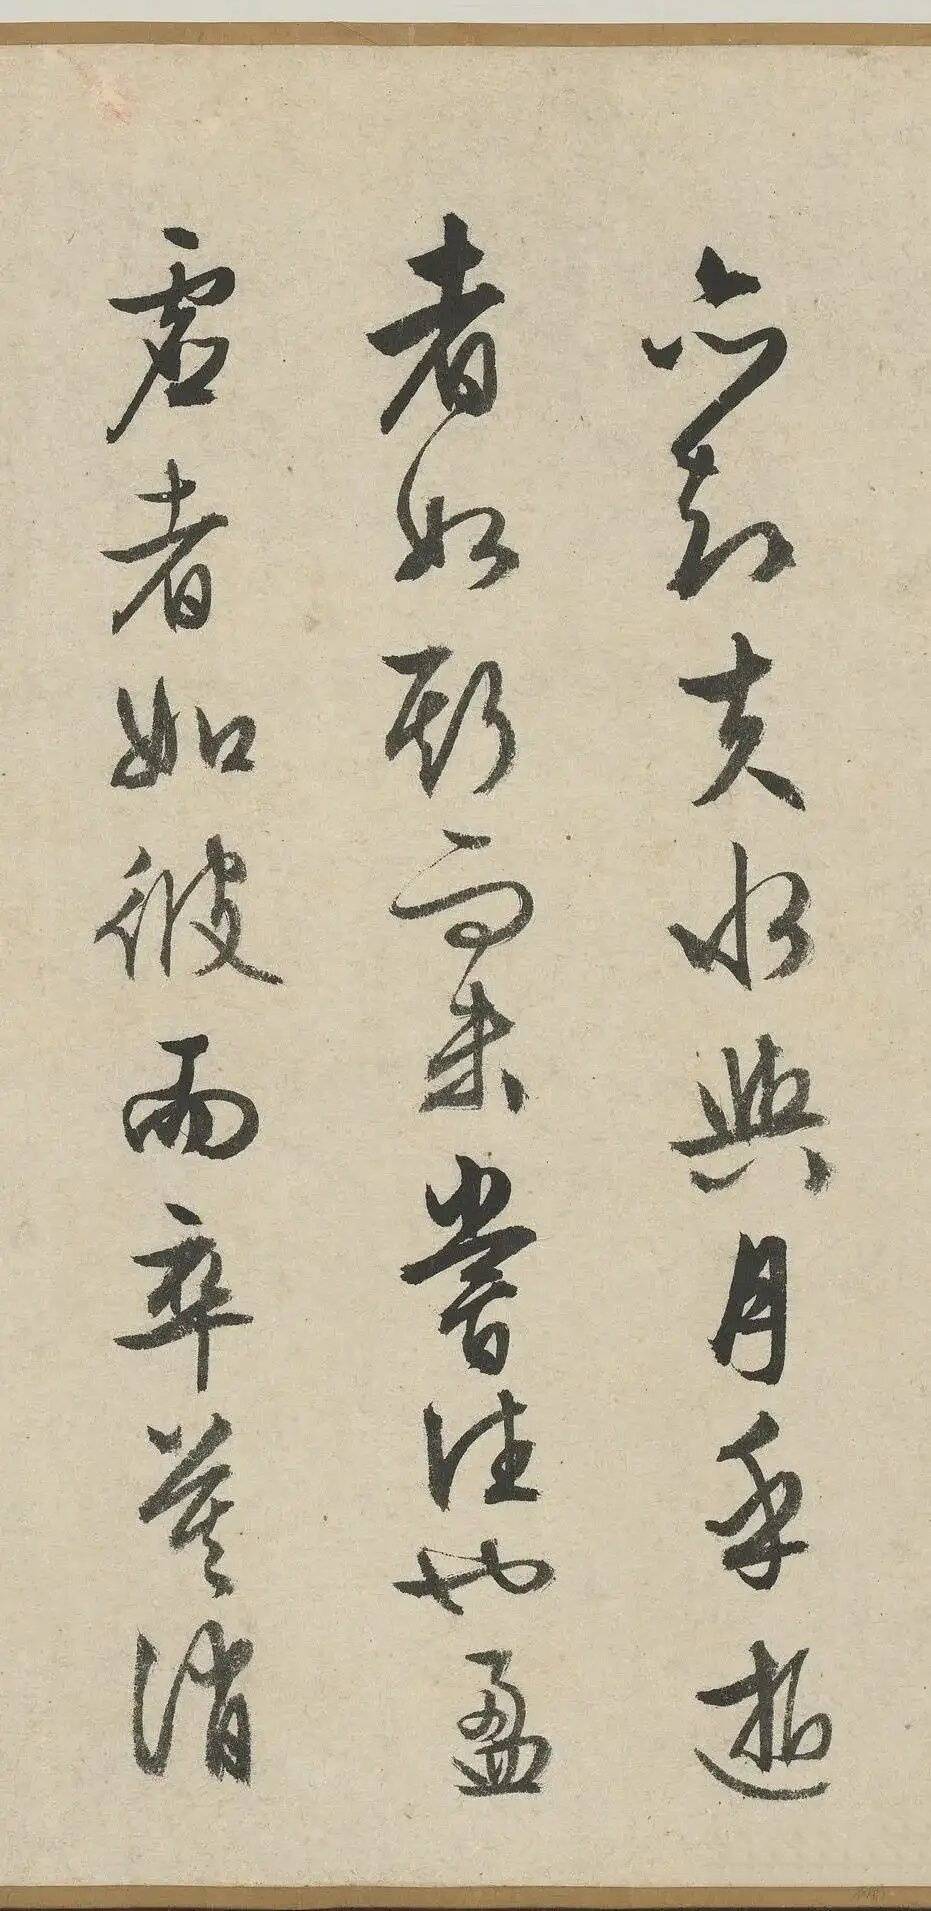 亦知夫水與月乎逝
者如斯而未嘗往也盈
虛者如彼而卒莫消